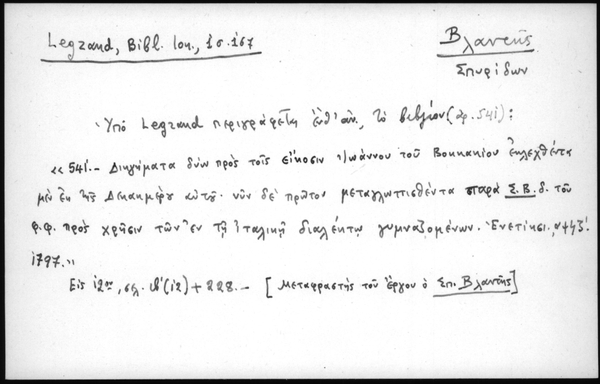 Legrand, Bibl. Ion., 1 σ. 167
Βλαντῆς
Σπυρίδων
Ὑπό Legrand περιγράφεται ἐνθ' ἀν. τό βιβλίον (ἀρ. 541):
«541.- Διηγήματα δύω πρὸς τοῖς εἴκοσιν Ἰωάννου τοῦ Βοκκακίου ἐκλεχθέντα
μὲν ἐκ τῆς Δεκαημέρου αὐτοῦ· νῦν δὲ πρῶτον μεταγλωττισθέντα παρά Σ.Β.δ. τοῦ
φ.φ. πρὸς χρῆσιν τῶν ἐν τῇ Ἰταλικῇ διαλέκτῳ γυμναζομένων. Ἐνετίησι, ͵αψϟζ'.
1797.»
Εἰς 12ον, σελ. ιβ' (12) + 228.- [Μεταφραστής τοῦ ἔργου ὁ Σπ. Βλαντῆς]